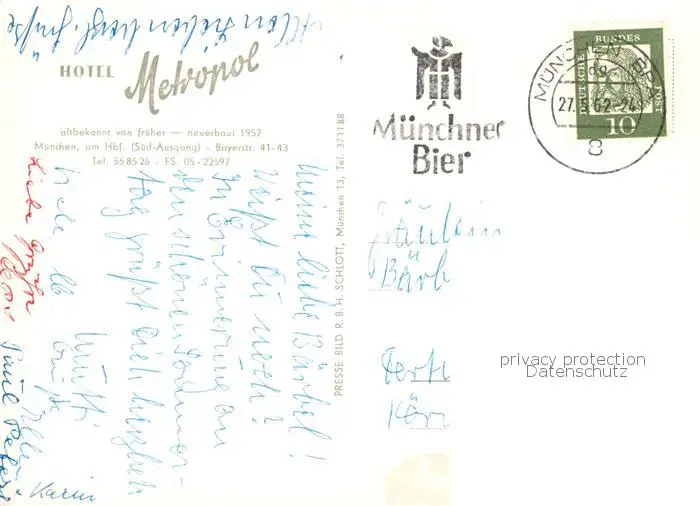 Allen Lieben herzl. Grüße
HOTEL Metropol
altbekannt von früher — neuerbaut 1957
München, am Hbf. (Süd-Ausgang) - Bayerstr. 41-43
Tel. 55 85 26 - FS. 05 - 22597
Meine liebe Bärbel!
Weißt Du noch?
In Erinnerung an
den schönen Donners-
tag grüßt Dich herzlich
Mutti
viele lb. Grüße
Liebe Grüße
Paul Peter
Karin
PRESSE BILD R. B. H. SCHLOTT, München 13, Tel. 37 11 88
Münchner
Bier
MÜNCHEN BPA
27. 62-24
8
DEUTSCHE BUNDESPOST
10
Fräulein
Bärb
privacy protection
Datenschutz